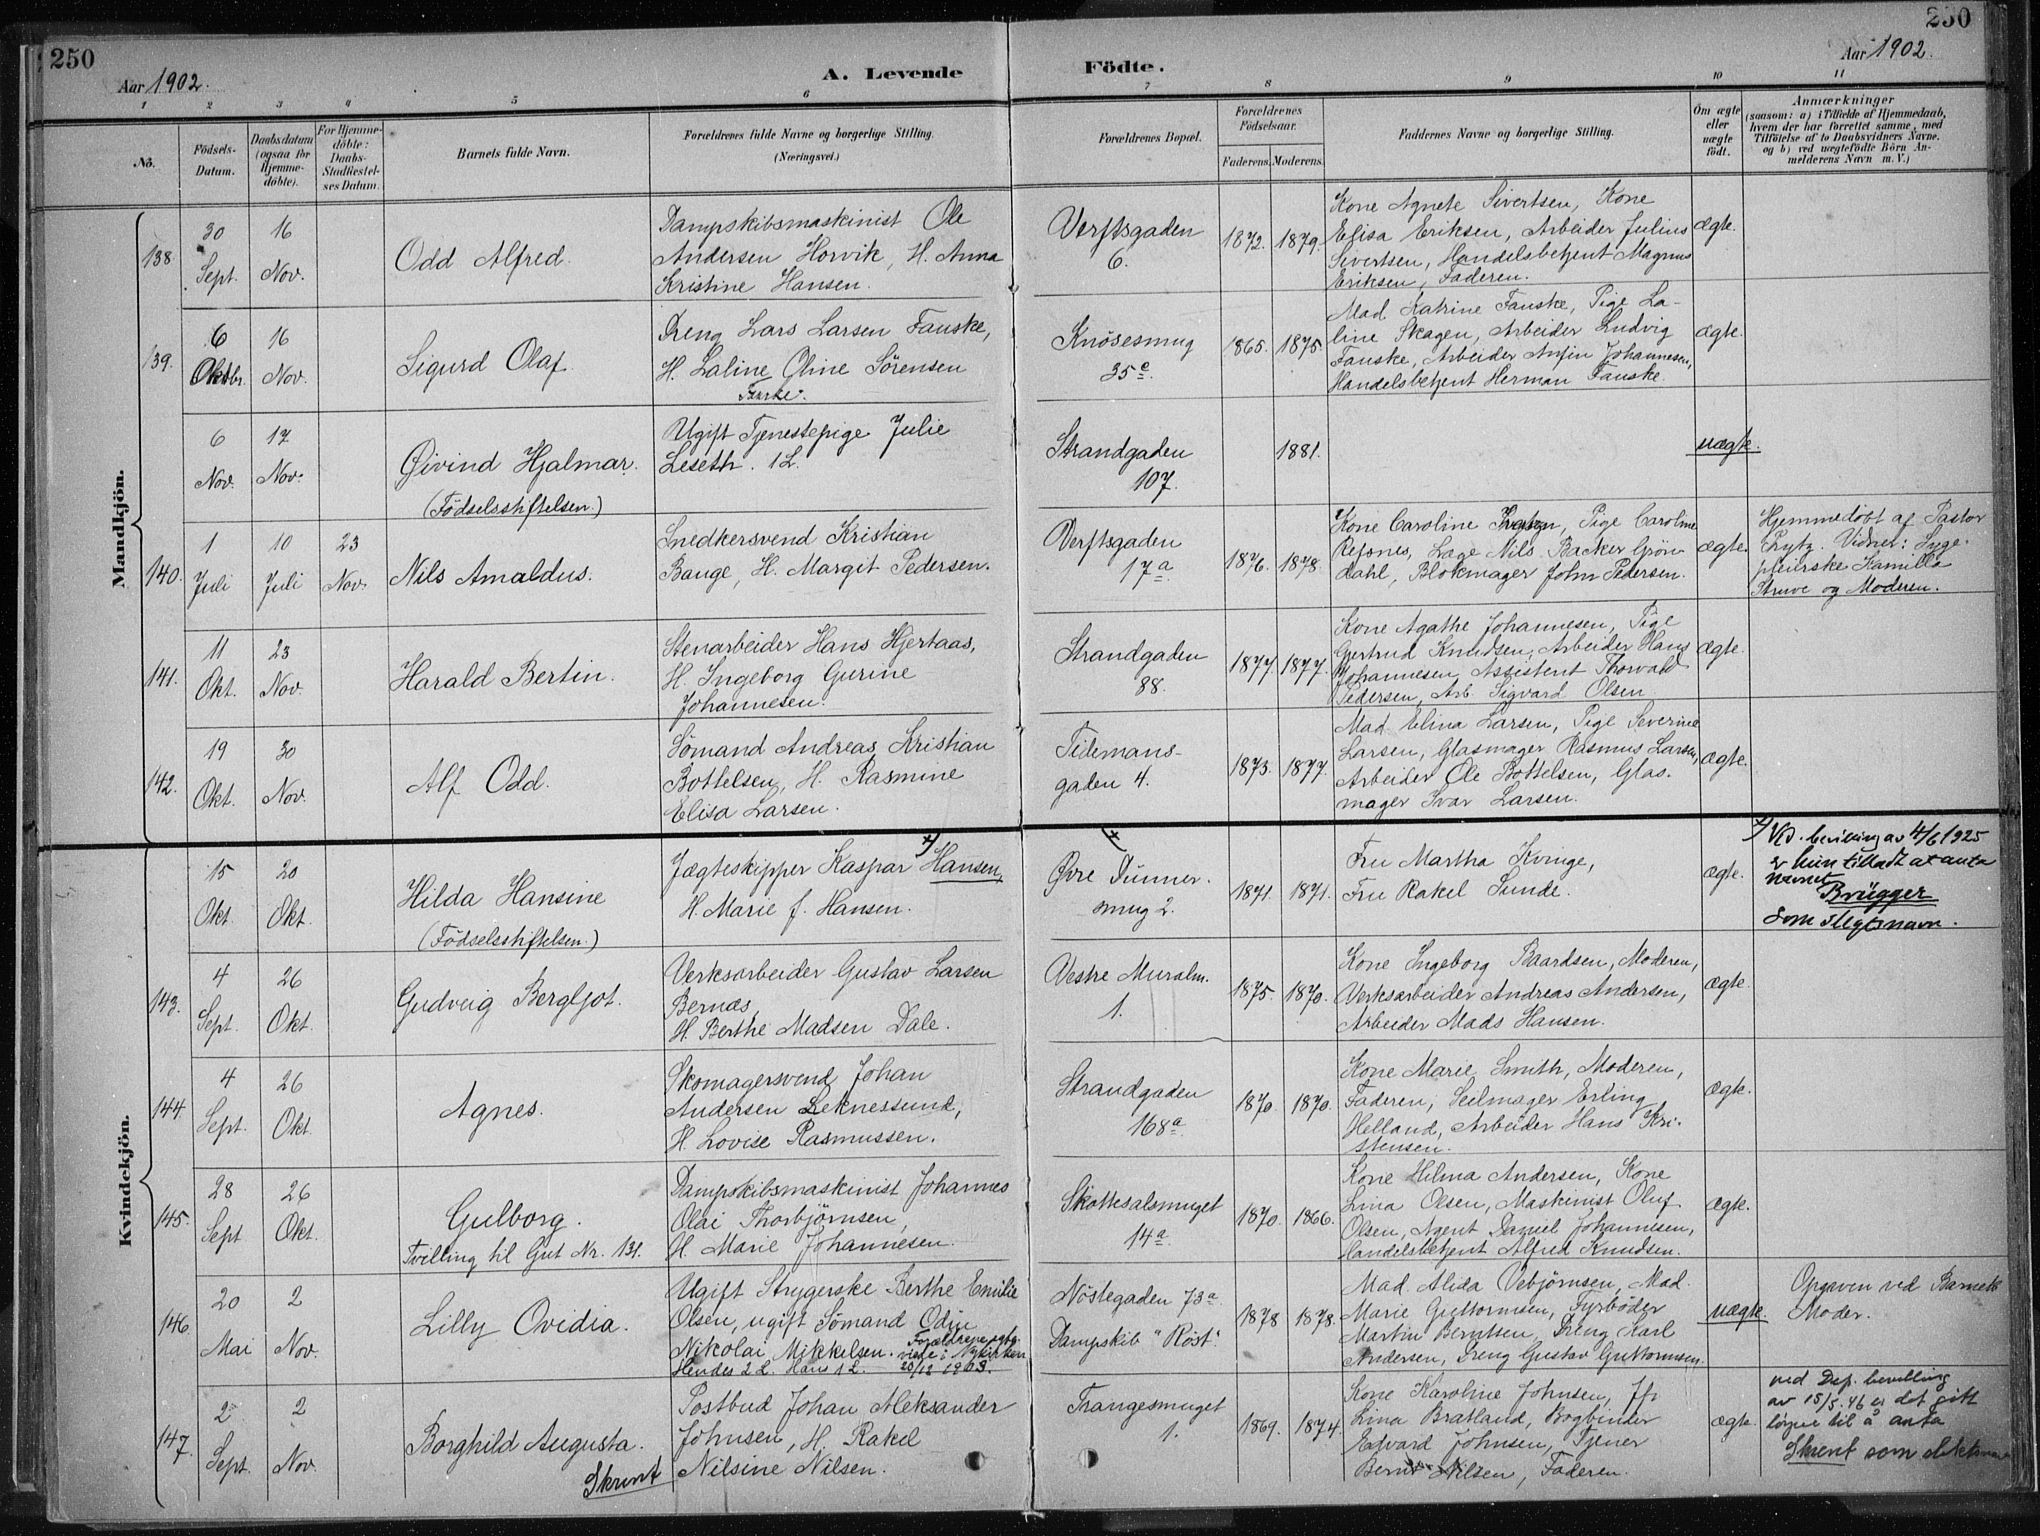 250
Aar 1902.
A. Levende
Fødte.
250
Aar 1902.
1 2 3 4 5 6 7 8 9 10 11
No.
Födsels-Datum.
Daabsdatum (ogsaa for Hjemme-döbte).
For Hjemme-döbte: Daabs-Stadfæstel-ses Datum.
Barnets fulde Navn.
Forældrenes fulde Navne og borgerlige Stilling.
(Næringsvei.)
Forældrenes Bopæl.
Forældrenes Födselsaar.
Faderens. Moderens.
Faddernes Navne og borgerlige Stilling.
Om ægte eller uægte födt.
Anmærkninger
(saasom: a) i Tilfælde af Hjemmedaab,
hvem der har forrettet samme, med
Tilföielse af to Daabsvidners Navne.
og b) ved uægtefödte Börn An-
melderens Navn m. V.)
Mandkjön.
138.
30 Sept.
16 Nov.
Odd Alfred.
Dampskibsmaskinist Ole
Andersen Horvik, H. Anna
Kristine Hansen.
Verftsgaden
6.
1872. 1879.
Kone Agnete Sivertsen, Kone
Elisa Eriksen, Arbeider Julius
Sivertsen, Handelsbetjent Magnus
Eriksen, Faderen.
ægte.
139.
6 Oktbr.
16 Nov.
Sigurd Olaf.
Dreng Lars Larsen Fauske,
H. Laline Oline Sørensen
Knösesmug
35c.
1865. 1875
Mad. Katrine Fauske, Pige La-
line Skagen, Arbeider Ludvig
Fauske, Arbeider Anfin Johannesen,
Handelsbetjent Herman Fauske.
ægte.
6 Nov.
17 Nov.
Øivind Hjalmar.
(Fødselsstiftelsen.)
Ugift Tjenestepige Julie
Leseth. 1L.
Strandgaden
107.
1881.
uægte.
140.
1 Juli
10 Juli
23 Nov.
Nils Arnaldus.
Snedkersvend Kristian
Bauge, H. Margit Pedersen.
Verftsgaden
17a
1876. 1878.
Kone Caroline Pige Caroline
Refsnes, Læge Nils Backer Grøn-
dahl, Blokmager John Pedersen.
ægte.
Hjemmedöbt af Pastor
Prytz. Vidner: Syge-
pleierske Kamilla
Struve og Moderen.
141.
11 Okt.
23 Nov.
Harald Bertin.
Stenarbeider Hans Hjertaas,
H. Ingeborg Gurine
Johannesen.
Strandgaden
88.
1877. 1877.
Kone Agathe Johannesen, Pige
Gertrud Knudsen, Arbeider Hans
Johannesen, Assistent Thorvald
Pedersen, Arb. Sigvard Olsen
ægte.
142.
19 Okt.
30 Nov.
Alf Odd.
Sömand Andreas Kristian
Bottelsen, H. Rasmine
Elisa Larsen.
Tidemans-
gaden 4.
1873. 1877.
Mad Elina Larsen, Pige Severine
Larsen, Glasmager Rasmus Larsen,
Arbeider Ole Bottelsen, Glas-
mager Ivar Larsen.
ægte.
Kvindekjön.
15 Okt.
20 Okt.
Hilda Hansine
(Fødselsstiftelsen.)
Jægteskipper Kaspar Hansen,
H. Marie f. Hansen.
Øvre Dunner-
smug 2.
1871. 1871.
Fru Martha Kvinge,
Fru Rakel Sunde.
ægte.
Vd. bevilling av 4/6 1925
er hun tilladt at anta
navnet
Brügger
som slegtsnavn.
143.
4 Sept.
26 Okt.
Gudveig Bergljot.
Verksarbeider Gustav Larsen
Bernæs,
H. Berthe Madsen Dale.
Vestre Muralm.
1.
1875. 1870.
Kone Ingeborg Baardsen, Moderen,
Verksarbeider Andreas Andersen,
Arbeider Mads Hansen.
ægte.
144.
4 Sept.
26 Okt.
Agnes.
Skomagersvend Johan
Andersen Leknessund,
H. Lovise Rasmussen.
Strandgaden
168a
1870. 1870.
Kone Marie Smith, Moderen,
Faderen, Seilmager Erling
Helland, Arbeider Hans Kri-
stensen.
ægte.
145.
28 Sept
26 Okt.
Gulborg.
Tvilling til Gut Nr. 131.
Dampskibsmaskinist Johannes
Olai Thorbjörnsen,
H. Marie Johannesen.
Skottesalsmuget
14a
1870. 1866.
Kone Hilma Andersen, Kone
Lina Olsen, Maskinist Oluf
Olsen, Agent Daniel Johannesen,
Handelsbetjent Alfred Knudsen.
ægte.
146.
20 Mai
2 Nov.
Lilly Ovidia.
Ugift Strygerske Berthe Emilie
Olsen, ugift Sömand Odin
Nikolai Mikkelsen. Forældrene ægte-
viede i Nykirken
Hendes 2 L. Hans 1 L. 20/12 1903.
Nöstegaden 73a
Dampskib "Röst".
1878 1878.
Mad. Alida Vebjörnsen, Mad.
Marie Guttormsen, Fyrböder
Martin Berntsen, Dreng Karl
Andersen, Dreng Gustav Guttormsen.
uægte.
Opgaven ved Barnets
Moder.
147.
2 Sept.
2 Nov.
Borghild Augusta.
Skrent
Postbud Johan Aleksander
Johnsen, H. Rakel
Nilsine Nilsen.
Trangesmuget
1.
1869. 1874.
Kone Karoline Johnsen, Jfr
Lina Bratland, Bogbinder
Edvard Johnsen, Tjener
Bernt Nilsen, Faderen.
ægte.
ved Dep. bevilling
av 15/5.46 er det gitt
løyve til å anta
Skrent som slektsnavn